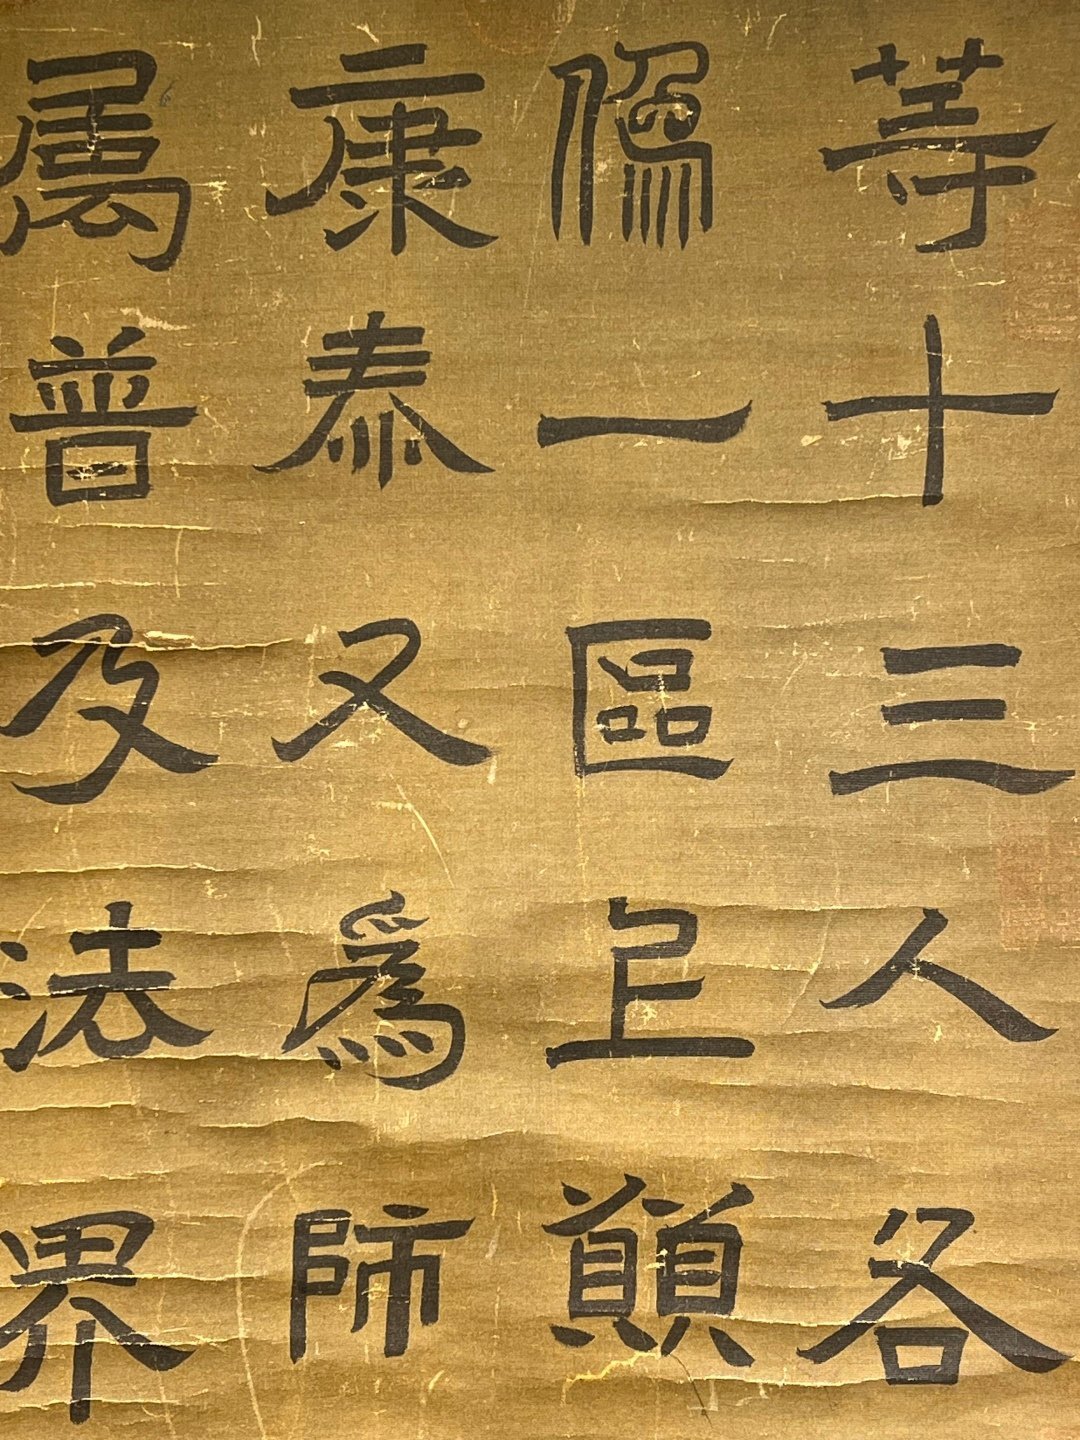 等十三人各
像一區上願
康泰又爲師
屬普及法界